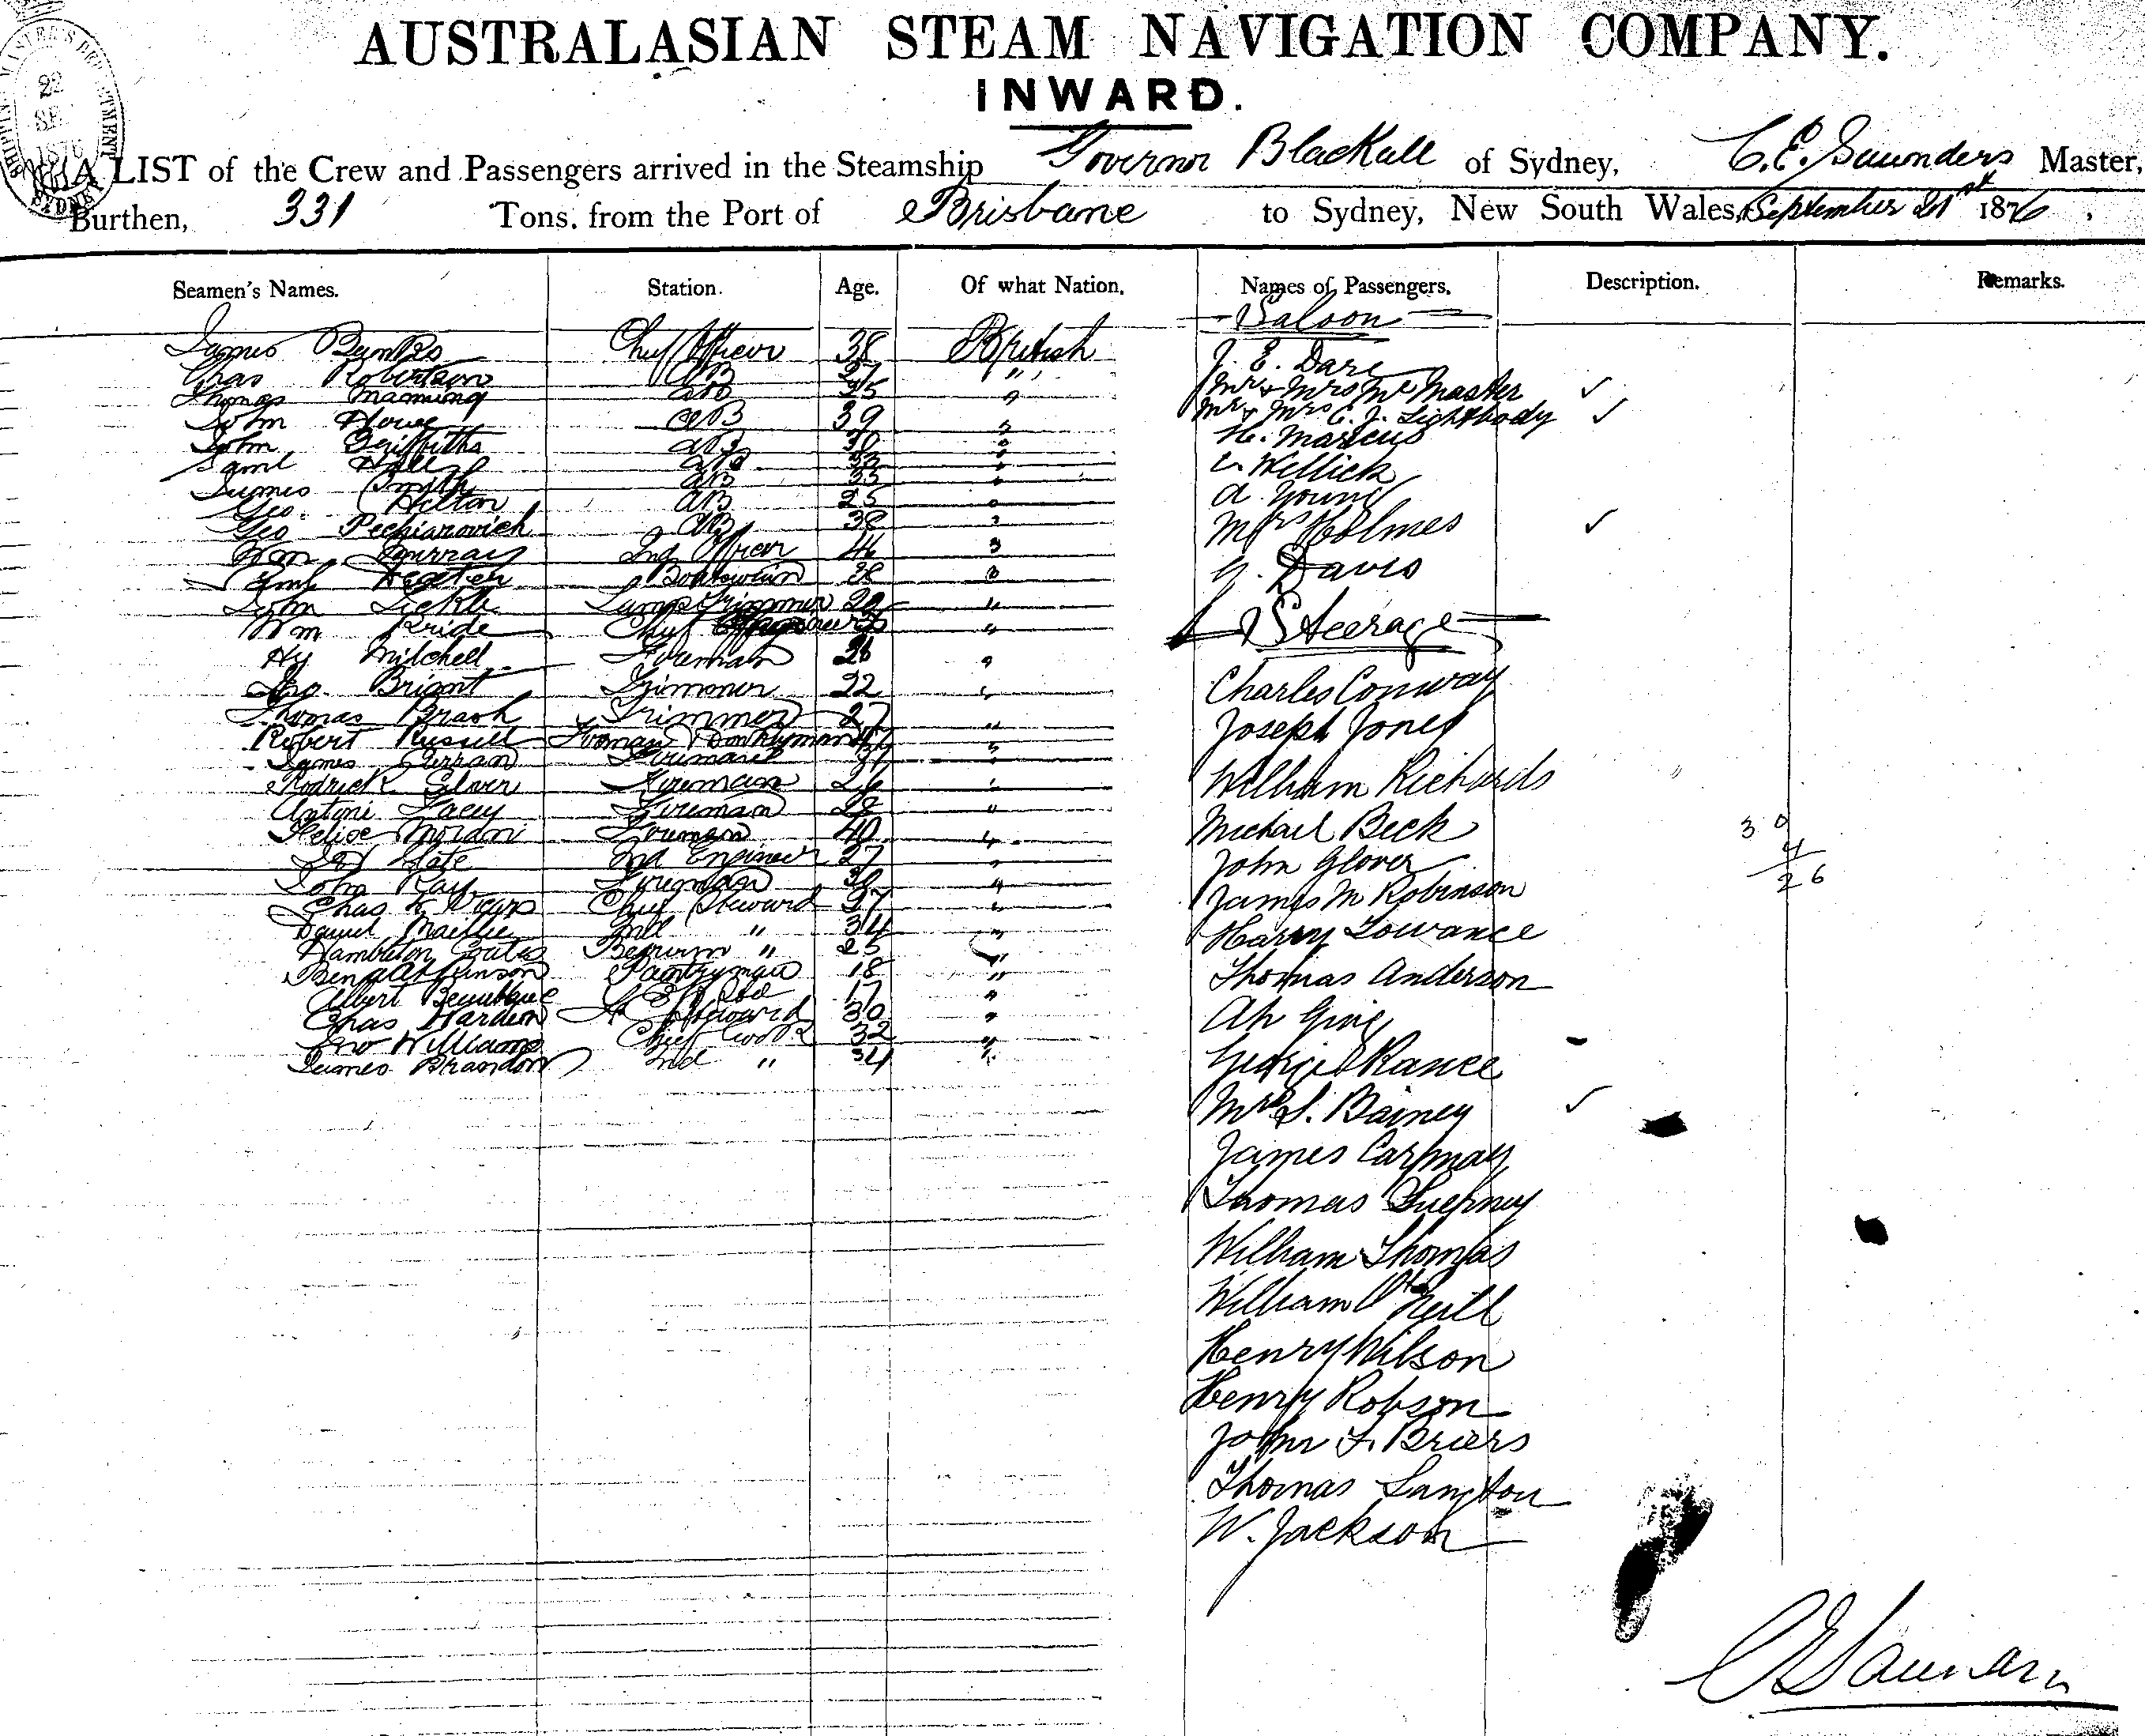 AUSTRALASIAN STEAM NAVIGATION COMPANY.
INWARD.
22
SE
1876
SYDNEY
A LIST of the Crew and Passengers arrived in the Steamship Governor Blackall of Sydney, C. E. Saunders Master,
Burthen, 331 Tons, from the Port of Brisbane to Sydney, New South Wales, September 21st 1876.
Seamen's Names. Station. Age. Of what Nation. Names of Passengers. Description. Remarks.
James Chief Officer 38 British
Chas Robertson AB 27 "
Thomas Manning AB 25 "
John Howe AB 39 "
John Griffiths AB "
Saml Hall AB "
James Smyth AB 33 "
Geo. Hilton AB 25 "
Geo AB 38 "
Wm Murray 2nd Officer 46 "
Saml Boatswain 28 "
John Lamp Trimmer "
Wm Pride Chief "
Hy Mitchell Fireman 26 "
Briant Trimmer 22 "
Thomas Trimmer 27 "
Robert Russell Fireman "
James Curran Fireman "
Rodrick Silver Fireman 26 "
Antoni Lacey Fireman 28 "
Fireman 40 "
2nd Engineer 27 "
John Ray Fireman "
Chas Chief Steward 37 "
Daniel 2nd " 34 "
Hambleton Coates " 25 "
Pantryman 18 "
Albert 17 "
Chas Harden Steward 30 "
Jno Williams Chief Cook 32 "
James Brandon 2nd " 34 "
Saloon
J. E. Dare
Mr & Mrs McMaster ✓
Mr & Mrs C. J. Lightbody ✓
H. Marcus
Willick
A. Young
Mrs Holmes ✓
G. Davis
Steerage
Charles Conway
Joseph Jones
William Richards
Michael Beck
John Glover
James M Robinson
Harry Lowance
Thomas Anderson
Ah Ging
George Rance
Mrs S. Bainey ✓
James Carmay
Thomas
William Thomas
William O'Neill
Henry Wilson
Henry Robson
John F. Briers
Thomas Langton
W. Jackson
30
4
26
C E Saunders